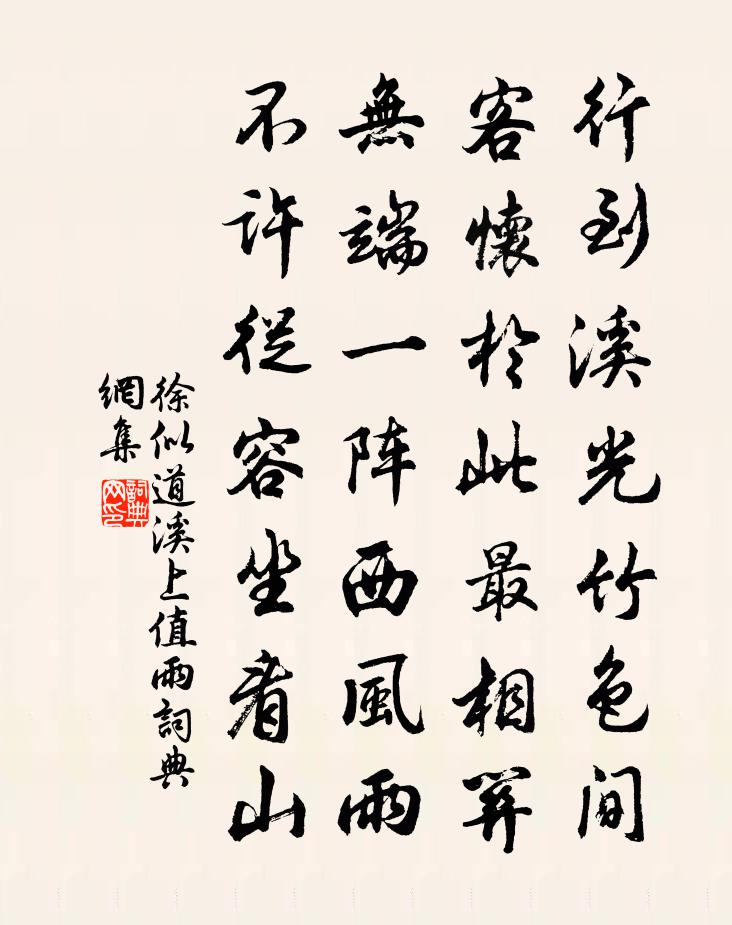 行到溪光竹色間
客懷於此最相關
無端一陣西風雨
不許從容坐看山
徐似道溪上值雨詞典
網集
詞典
网印